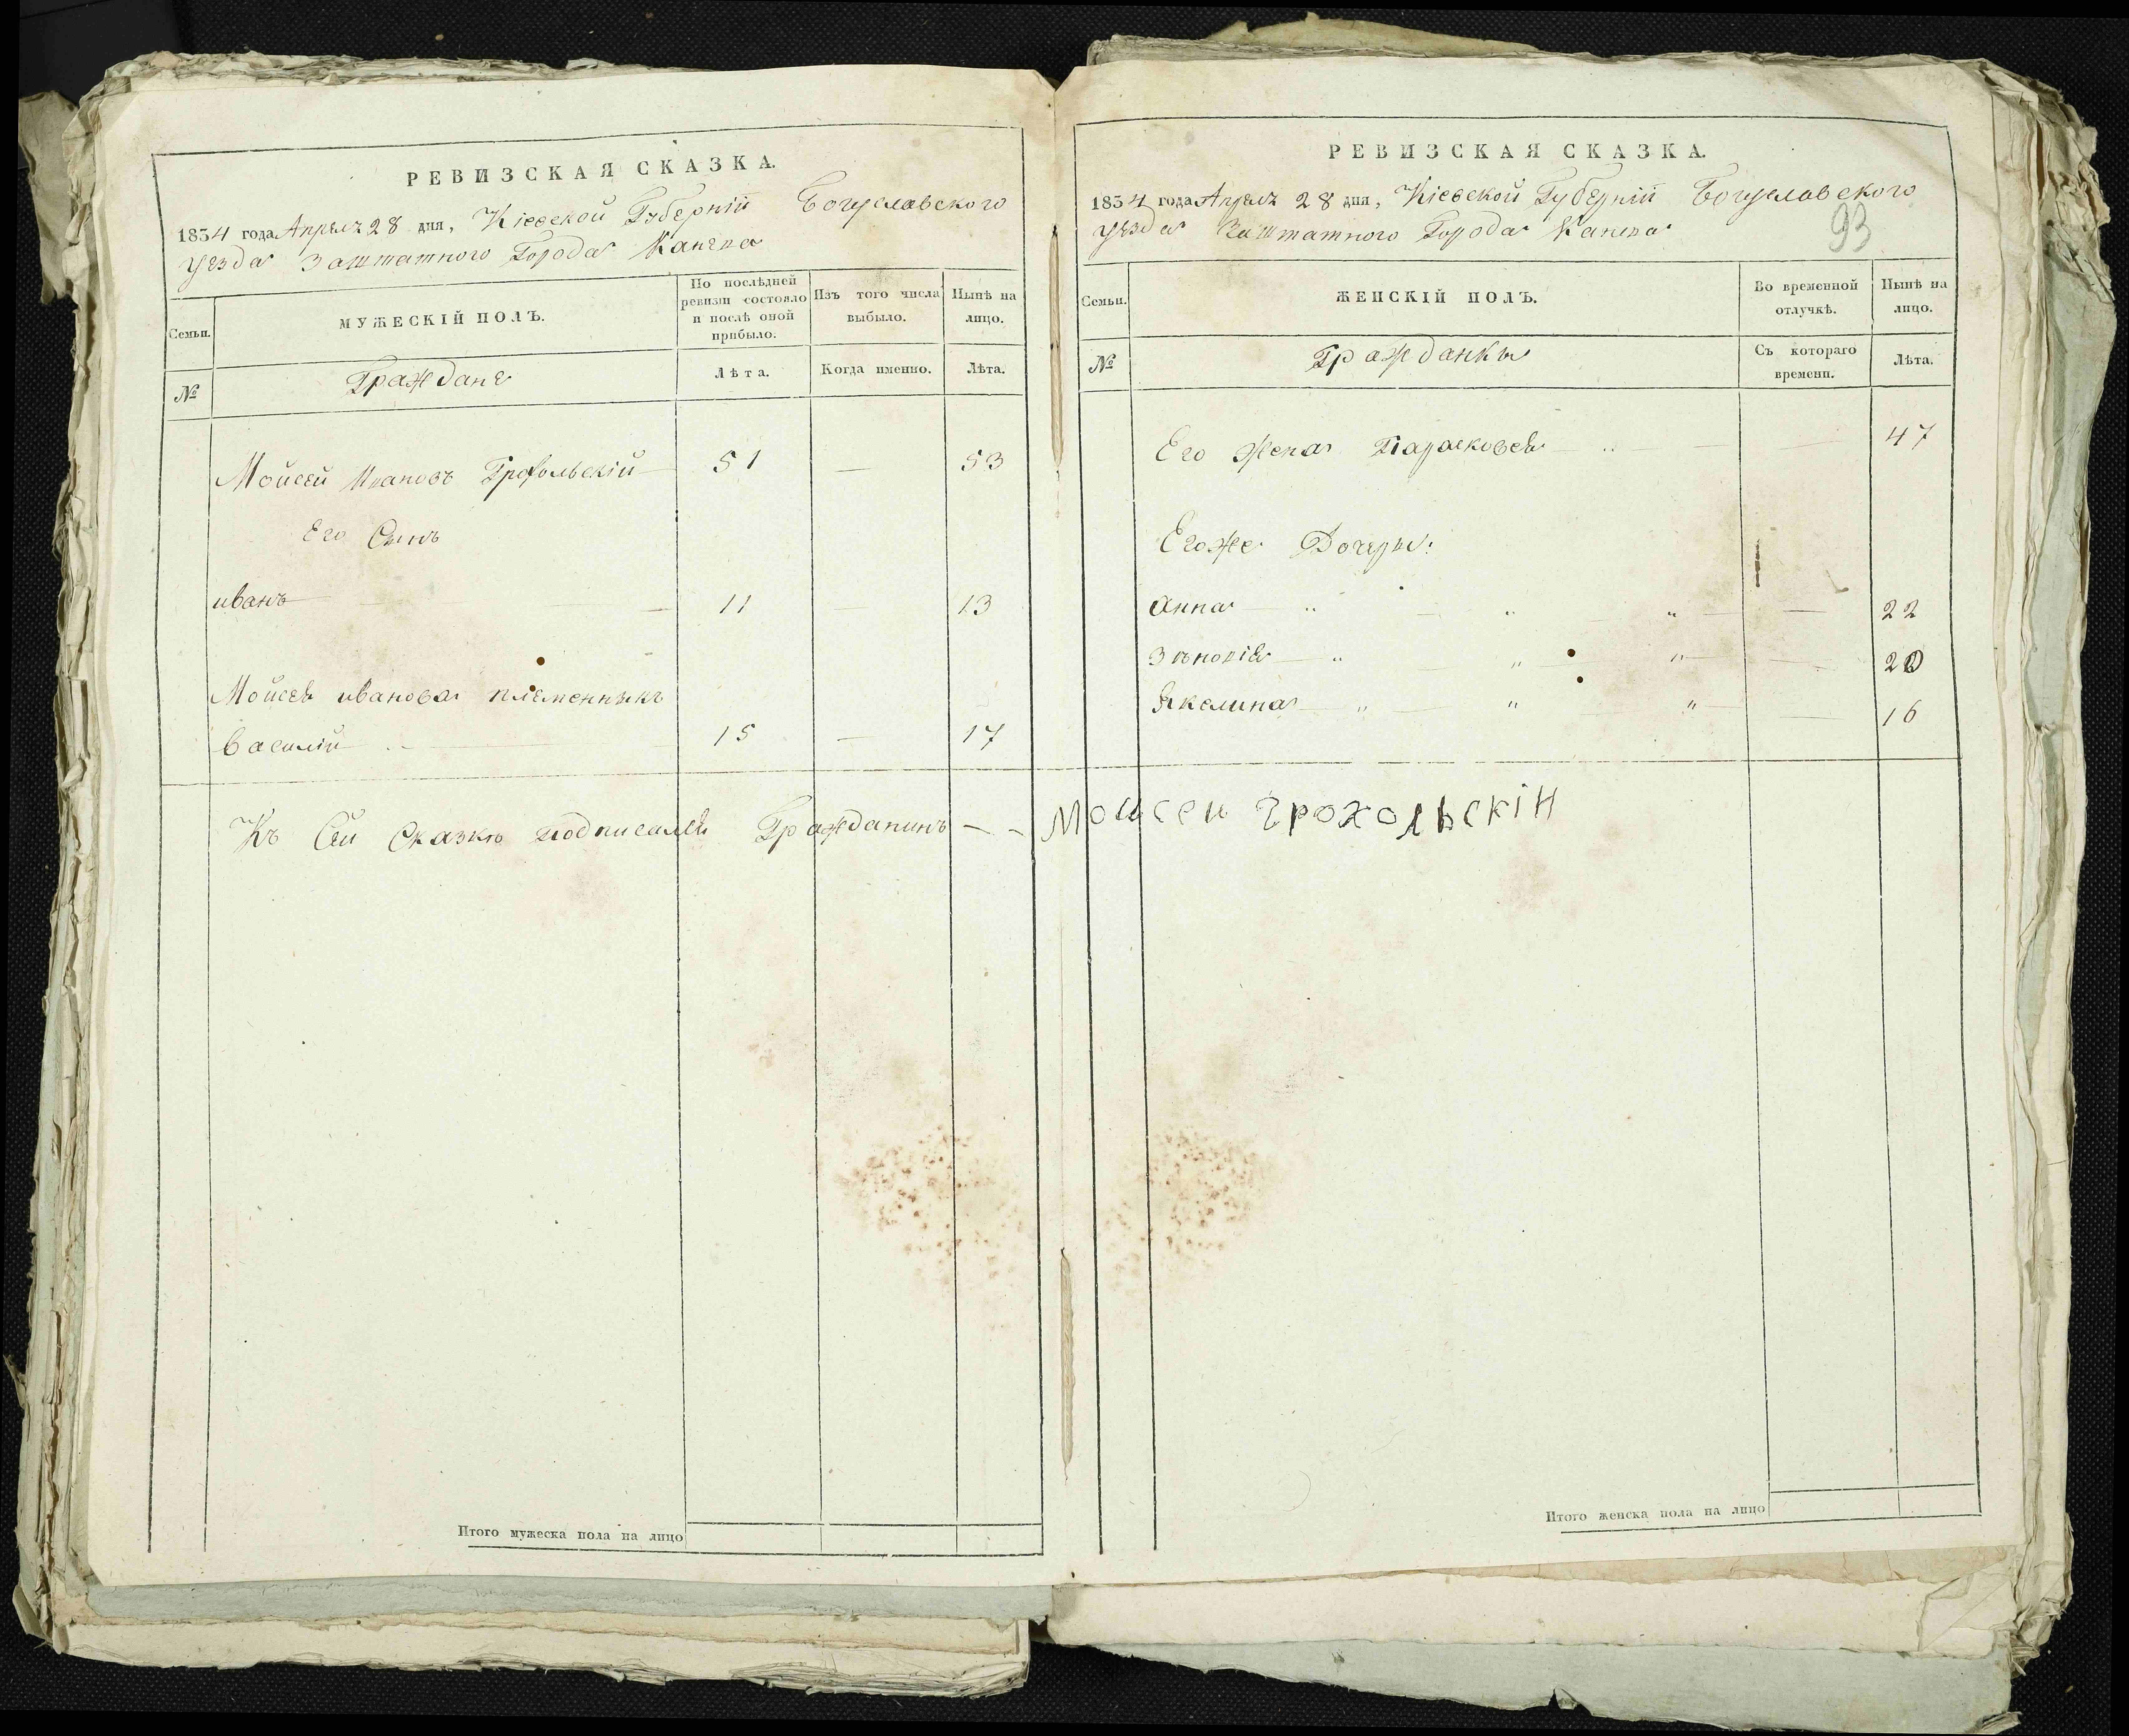 РЕВИЗСКАЯ СКАЗКА.
1834 года Апреля 28 дня, Кіевской Губерніи Богуславского
уезда Заштатного Города Канева
Семьи.
МУЖЕСКІЙ ПОЛЪ.
По послѣдней ревизіи состояло и послѣ оной прибыло.
Изъ того числа выбыло.
Нынѣ на лицо.
№
Граждане
Лѣта.
Когда именно.
Лѣта.
Мойсей Ивановъ Грохольскій 51 — 53
Его Сынъ
иванъ 11 — 13
Мойсея иванова племенныкъ
Василій 15 — 17
Къ Сей Сказкѣ подписался Гражданинъ — — Моисеи Грохольскін
Итого мужеска пола на лицо
РЕВИЗСКАЯ СКАЗКА.
1834 года Апреля 28 дня, Кіевской Губерніи Богуславского
93
уезда Заштатного Города Канева
Семьи.
ЖЕНСКІЙ ПОЛЪ.
Во временной отлучкѣ.
Нынѣ на лицо.
№
Гражданкы
Съ котораго времени.
Лѣта.
Его жена Парасковея — 47
Егоже Дочеры:
Анна — 22
Зѣновія — 20
Якелина — 16
Итого женска пола на лицо